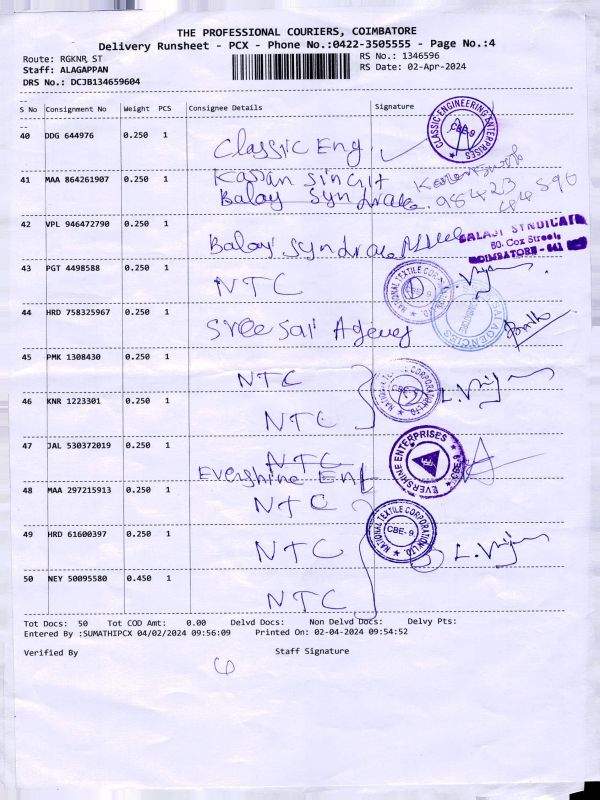 THE PROFESSIONAL COURIERS, COIMBATORE
Delivery Runsheet - PCX - Phone No.:0422-3505555 - Page No.:4
Route: RGKNR ST
Staff: ALAGAPPAN
DRS No.: DCJB134659604
RS No.: 1346596
RS Date: 02-Apr-2024
S No Consignment No Weight PCS Consignee Details Signature
40 DDG 644976 0.250 1 Classic Eng
CLASSIC ENGINEERING ENTERPRISES CBE-9
41 MAA 864261907 0.250 1 Kassan Singh
Balay Syndrake. 98423
42 VPL 946472790 0.250 1 Balay Syndrake
BALAJI SYNDICATE
60. Cox Street,
COIMBATORE - 641
43 PGT 4498588 0.250 1 NTC
NATIONAL TEXTILE CORPORATION LTD. CBE-9
44 HRD 758325967 0.250 1 Sree Sai Agency
AGENCIES
45 PMK 1308430 0.250 1 NTC
NATIONAL TEXTILE CORPORATION LTD. CBE-9
46 KNR 1223301 0.250 1 NTC
47 JAL 530372019 0.250 1 NTC
Evershine Ent
EVERSHINE ENTERPRISES
48 MAA 297215913 0.250 1 NTC
49 HRD 61600397 0.250 1 NTC
NATIONAL TEXTILE CORPORATION LTD. CBE-9
50 NEY 50095580 0.450 1 NTC
Tot Docs: 50 Tot COD Amt: 0.00 Delvd Docs: Non Delvd Docs: Delvy Pts:
Entered By :SUMATHIPCX 04/02/2024 09:56:09 Printed On: 02-04-2024 09:54:52
Verified By Staff Signature